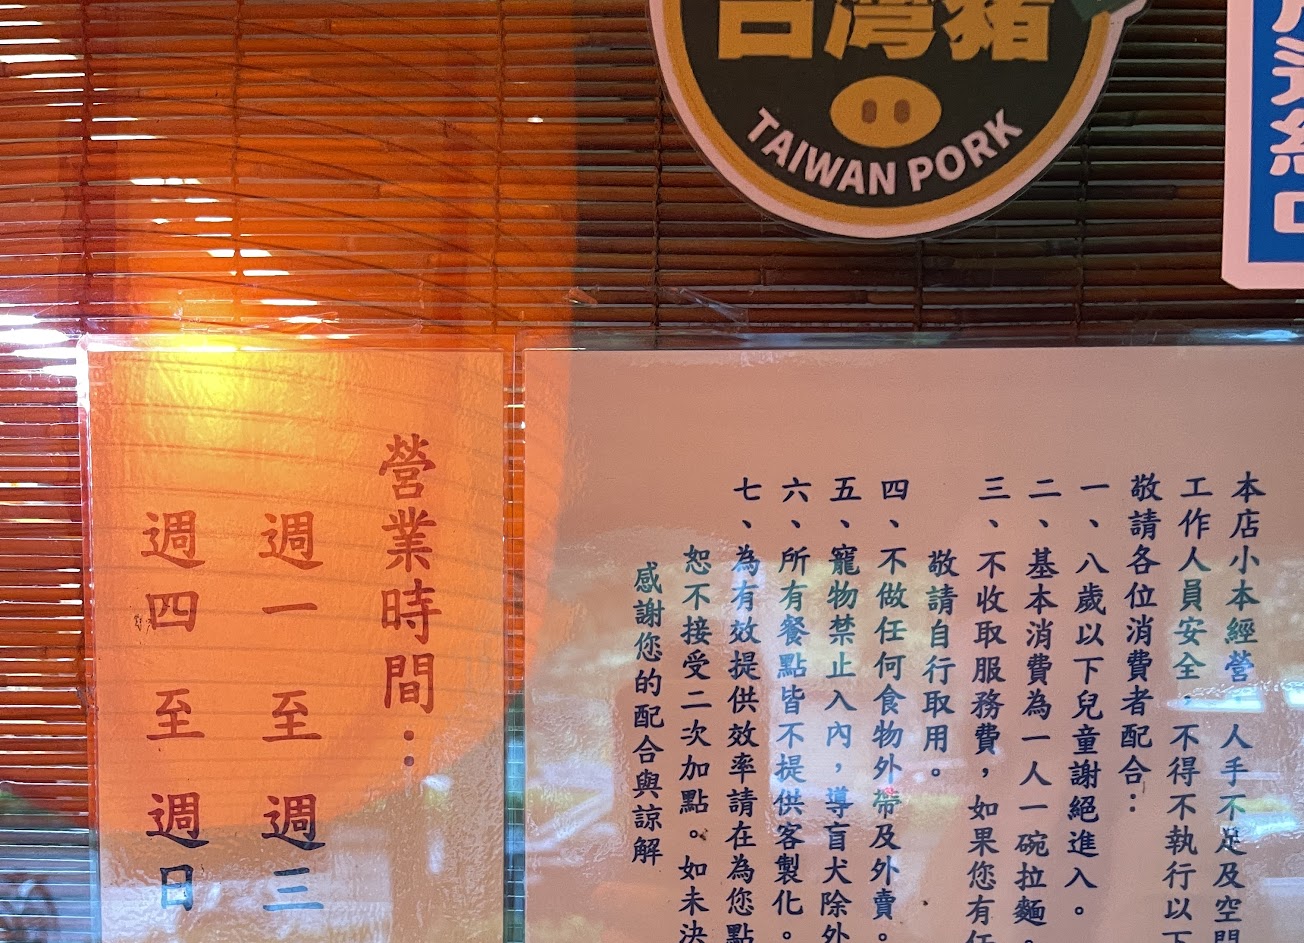 台灣豬
TAIWAN PORK
本店小本經營，人手不足及空間
工作人員安全，不得不執行以下
敬請各位消費者配合：
一、八歲以下兒童謝絕進入。
二、基本消費為一人一碗拉麵。
三、不收取服務費，如果您有任
敬請自行取用。
四、不做任何食物外帶及外賣。
五、寵物禁止入內，導盲犬除外
六、所有餐點皆不提供客製化。
七、為有效提供效率請在為您點
恕不接受二次加點。如未決
感謝您的配合與諒解
營業時間：
週一 至 週三
週四 至 週日